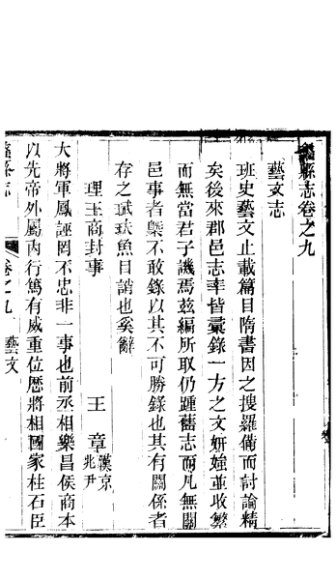 蠡縣志卷之九
藝文志
班史藝文止載篇目隋書因之搜羅備而討論精
矣後來郡邑志率皆彙錄一方之文妍媸並收繁
而無當君子譏焉茲編所取仍踵舊志而凡無關
邑事者槩不敢錄以其不可勝錄也其有關係者
存之珷玞魚目誚也奚辭
理王商封事 王章漢京兆尹
大將軍鳳誣罔不忠非一事也前丞相樂昌侯商本
以先帝外屬內行篤有威重位歷將相國家柱石臣
縣志 卷之九 藝文